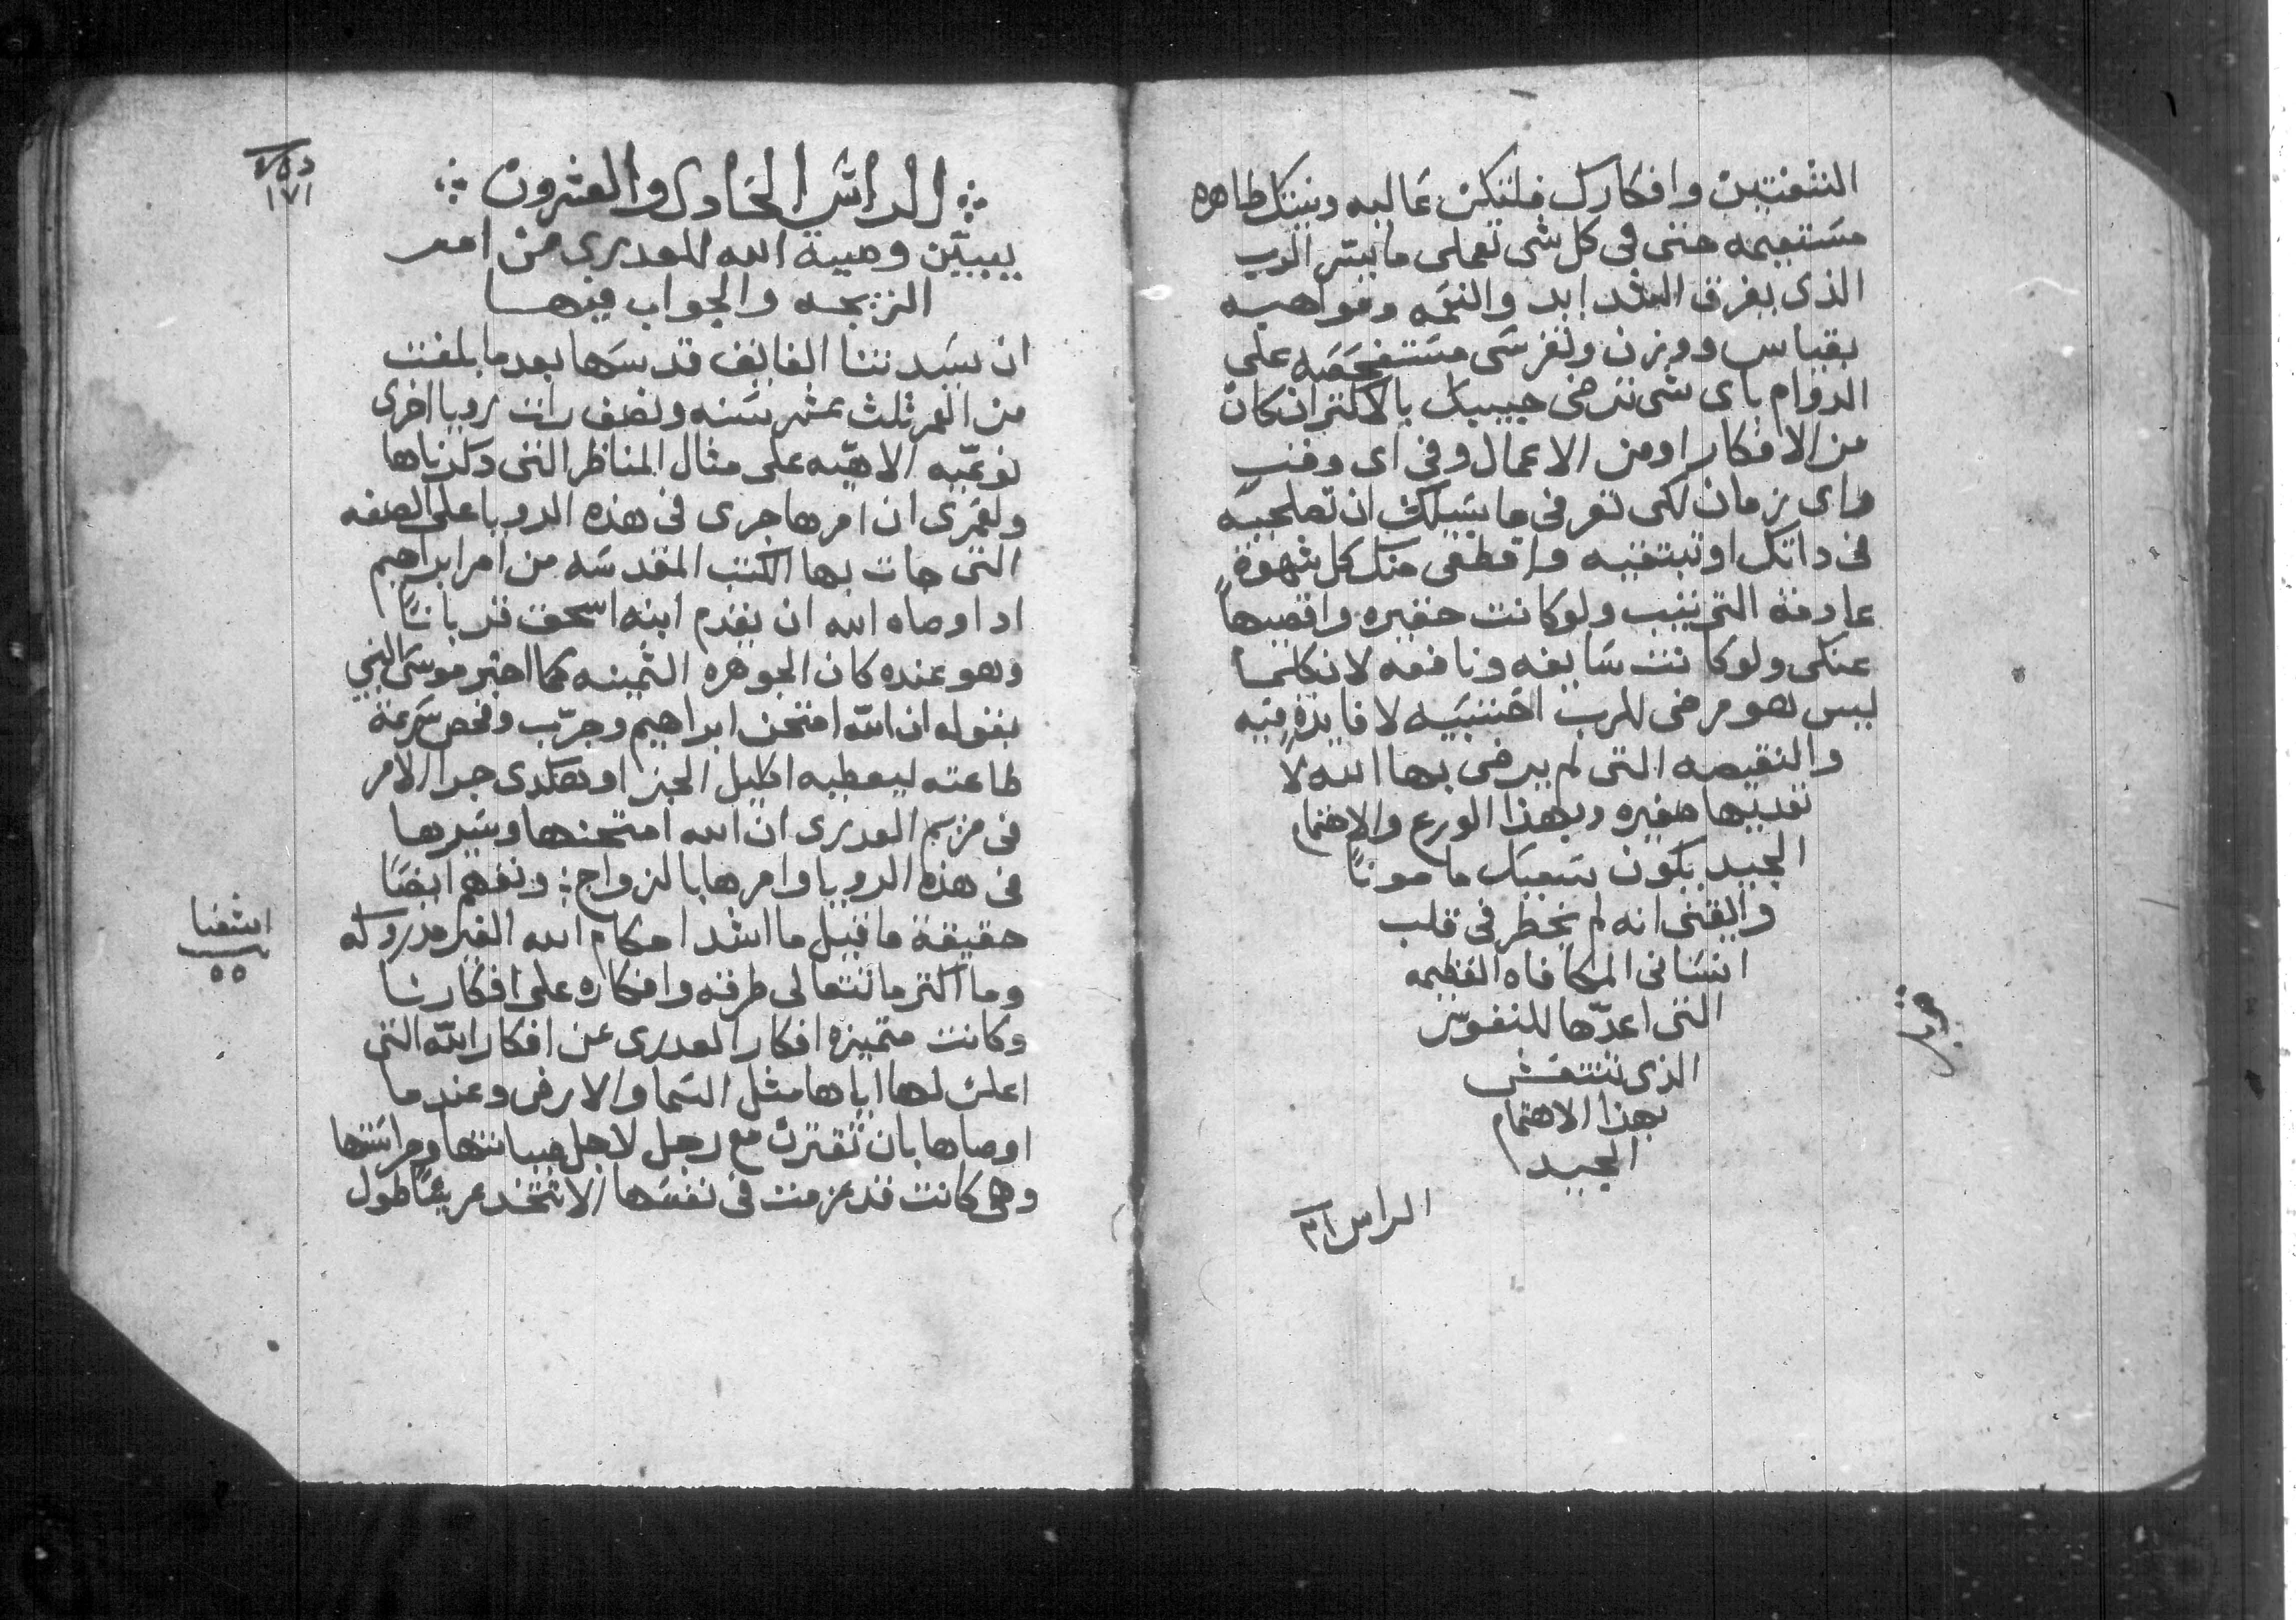 الشفتين وافكارك فلتكن عاليه ونيتك طاهره
مستقيمه حتى فى كل شى تعملى ما يسر الرب
الذى يفرق الشدايد والنقمه ومواهبه
بقياس ووزن ولتفرسى مستفحصه على
الدوام باى شى ترضى حبيبك بالاكتر ان كان
من الافكار او من الاعمال وفى اى وقت
واى زمان لكى تعرفى ما يسبلك ان تصلحيه
فى داتك او تبتغيه واقطعى منك كل شهوة
عادمة الترتيب ولو كانت حقيره واقصيها
عنكى ولو كانت سايغه ونافعه لان كلما
ليس هو مرضى للرب احسبيه لا فايدة فيه
والنقيصه التى لم يرضى بها الله لا
تعديها صغيره وبهذا الورع والاهتمام
الجيد يكون سعيك مامونًا
وايقنى انه لم يخطر فى قلب
انسان المكافاه العظيمه
التى اعدّها للنفوس
الذى تنتقش
بهذا الاهتمام
الجيد
الراس ٢١
الراس الحادى والعشرون
يبيّن وصية الله للعدرى من امر
الزيجه والجواب فيها
ان سيدتنا الفايق قدسها بعدما بلغت
من العمر ثلث عشر سنه ونصف رات رويا اخرى
نوعيّه الاهيّه على مثال المناظر التى دكرناها
ولعمرى ان امرها جرى فى هذه الرويا على الصفه
التى جات بها الكتب المقدسه من امر ابراهيم
اد اوصاه الله ان يقدم ابنه اسحق قربانًا
وهو عنده كان الجوهره الثمينه كما اخبر موسى النبي
بقوله ان الله امتحن ابراهيم وجرّب وفحص سرعة
طاعته ليعطيه اكليل الجزا وهكدى جرا الامر
فى مريم العدرى ان الله امتحنها وسبرها
فى هذه الرويا وامرها بالزواج ونفهم ايضًا
حقيقة ما قيل ما اشد احكام الله الغير مدروكه
وما اكتر ما تتعالى طرقه وافكاره على افكارنا
وكانت متميزه افكار العدرى عن افكار الله التى
اعلن لها اياها مثل السما والارض وعندما
اوصاها بان تقترن مع رجل لاجل صيانتها وحراستها
وهى كانت قد عزمت فى نفسها الا تتخد عريسًا طول
١٧١
اشعيا
٥٥